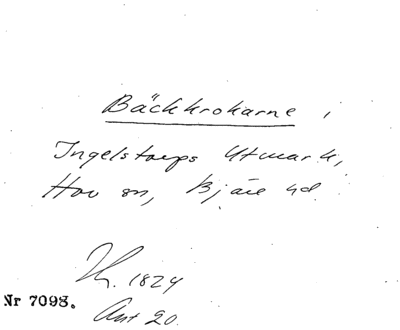 Bäckkrokarne,
Ingelstorps Utmark,
Hov sn, Bjäre hd.
1824
Nr 7098.
Ant 20.